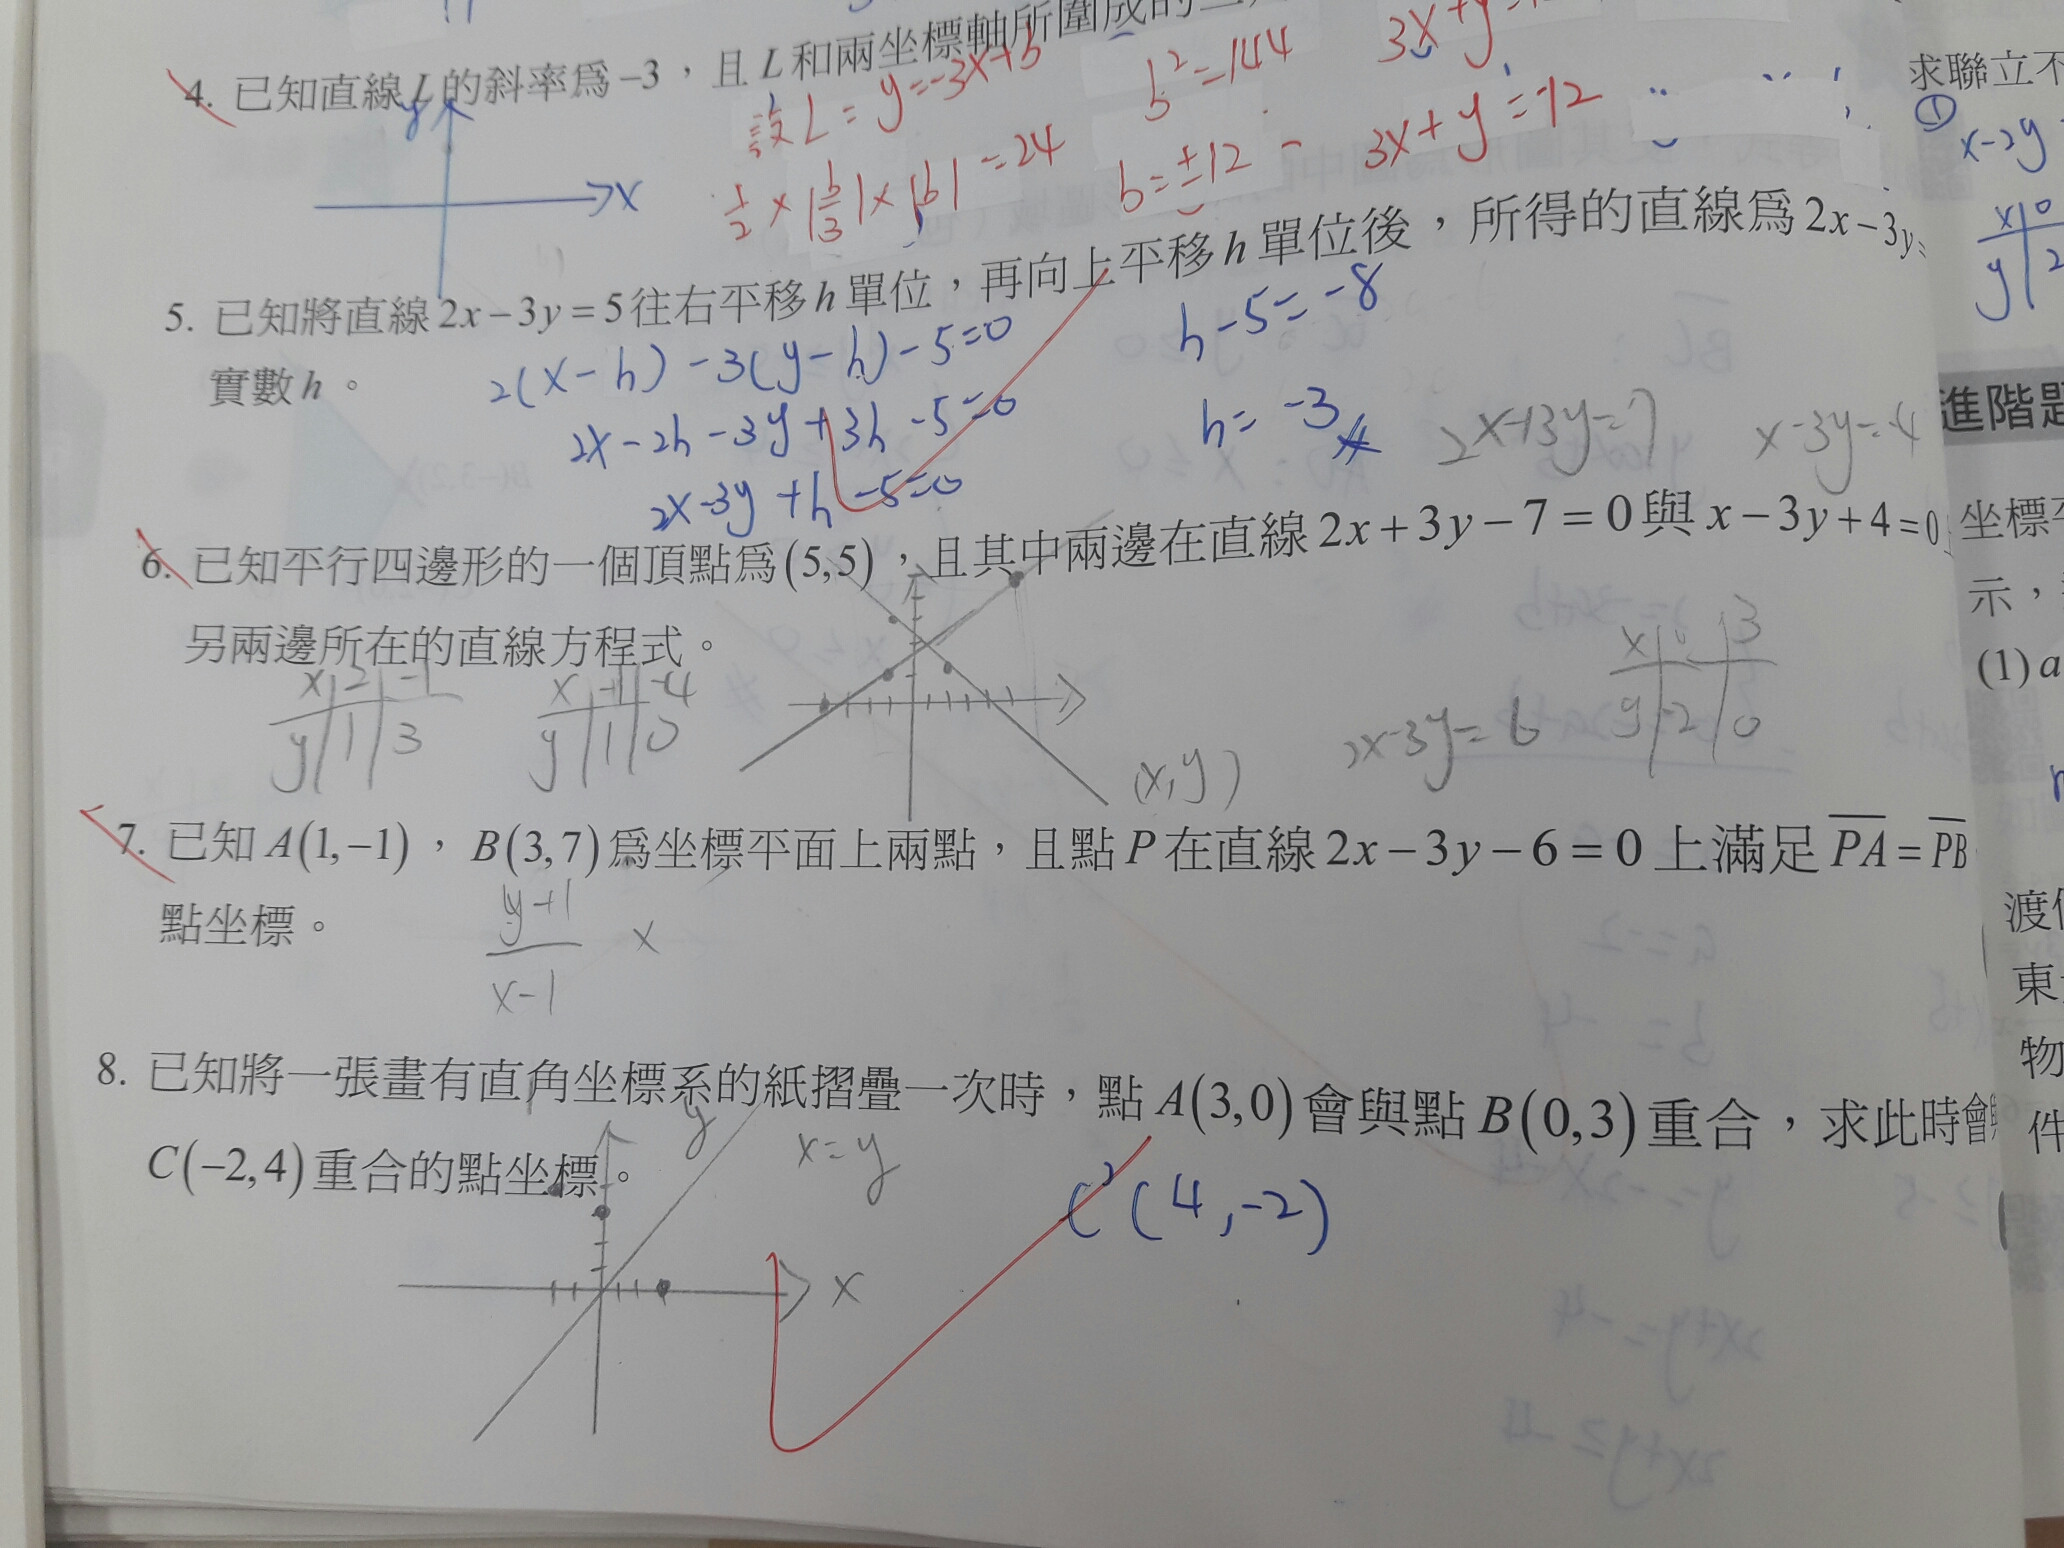 4. 已知直線 L 的斜率為 -3，且 L 和兩坐標軸所圍成的
設 L = y = -3x+b
b²=144
3x+y=12
y
x
1/2 × |b/3| × |b| = 24
b = ±12
3x+y=-12
5. 已知將直線 2x-3y=5 往右平移 h 單位，再向上平移 h 單位後，所得的直線為 2x-3y=
實數 h。
2(x-h)-3(y-h)-5=0
h-5=-8
2x-2h-3y+3h-5=0
h=-3
2x+3y=7
x-3y=-4
2x-3y+h-5=0
6. 已知平行四邊形的一個頂點為 (5,5)，且其中兩邊在直線 2x+3y-7=0 與 x-3y+4=0
另兩邊所在的直線方程式。
x 2 -1
y 1 3
x -1 -4
y 1 0
(x,y)
2x-3y=6
x 0 3
y -2 0
7. 已知 A(1,-1)，B(3,7) 為坐標平面上兩點，且點 P 在直線 2x-3y-6=0 上滿足 PA=PB
點坐標。
y+1
x-1
x
8. 已知將一張畫有直角坐標系的紙摺疊一次時，點 A(3,0) 會與點 B(0,3) 重合，求此時會與
C(-2,4) 重合的點坐標。
y
x=y
C'(4,-2)
x
求聯立不
①
x-2y
x 0
y 2
進階題
坐標平
示，
(1) a
渡
東
物
件